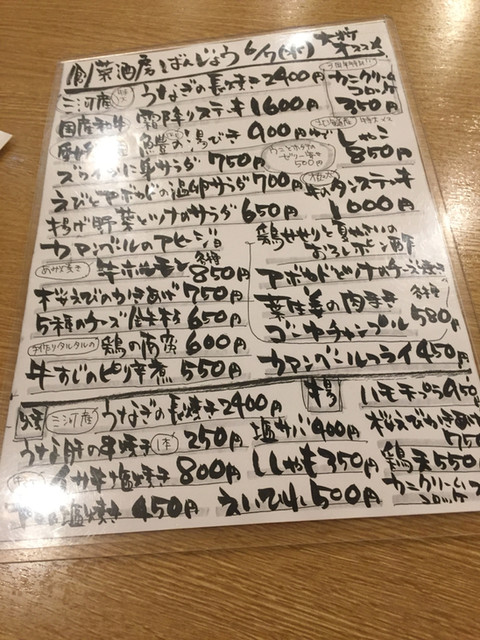 創菜酒房 ばんじょう 6/7(水) 本日のオススメ
三河産 うなぎの長焼き 2400円
国産和牛 霜降りステキ 1600円
鱧の湯びき 900円
ズワイガニ身サラダ 750円
えびとアボカドの温卵サラダ 700円
揚げ野菜とツナのサラダ 650円
カマンベールのアヒージョ
牛ホルモン 各種 850円
桜えびのかきあげ 750円
5種のチーズ 650円
手作りタルタルの 鶏の南蛮 600円
牛すじのピリ辛煮 550円
カニクリームコロッケ 350円
北海道産
しゃこ 850円
ゼリー寄せ 500円
牛のタンステーキ 1000円
鶏せせりと夏野菜のおろしポン酢
アボカドとツナのチーズ焼き
葉生姜の肉巻き 各種 580円
ゴーヤチャンプル
カマンベールフライ 450円
三河産 うなぎの長焼き 2400円
うなぎ肝の串焼き 1本 250円
塩焼き 800円
塩焼き 450円
塩サバ 400円
ししゃも 350円
えいひれ 500円
揚
いも天ぷら 450
桜えびかきあげ 750
鶏天 550
カニクリームコロッケ